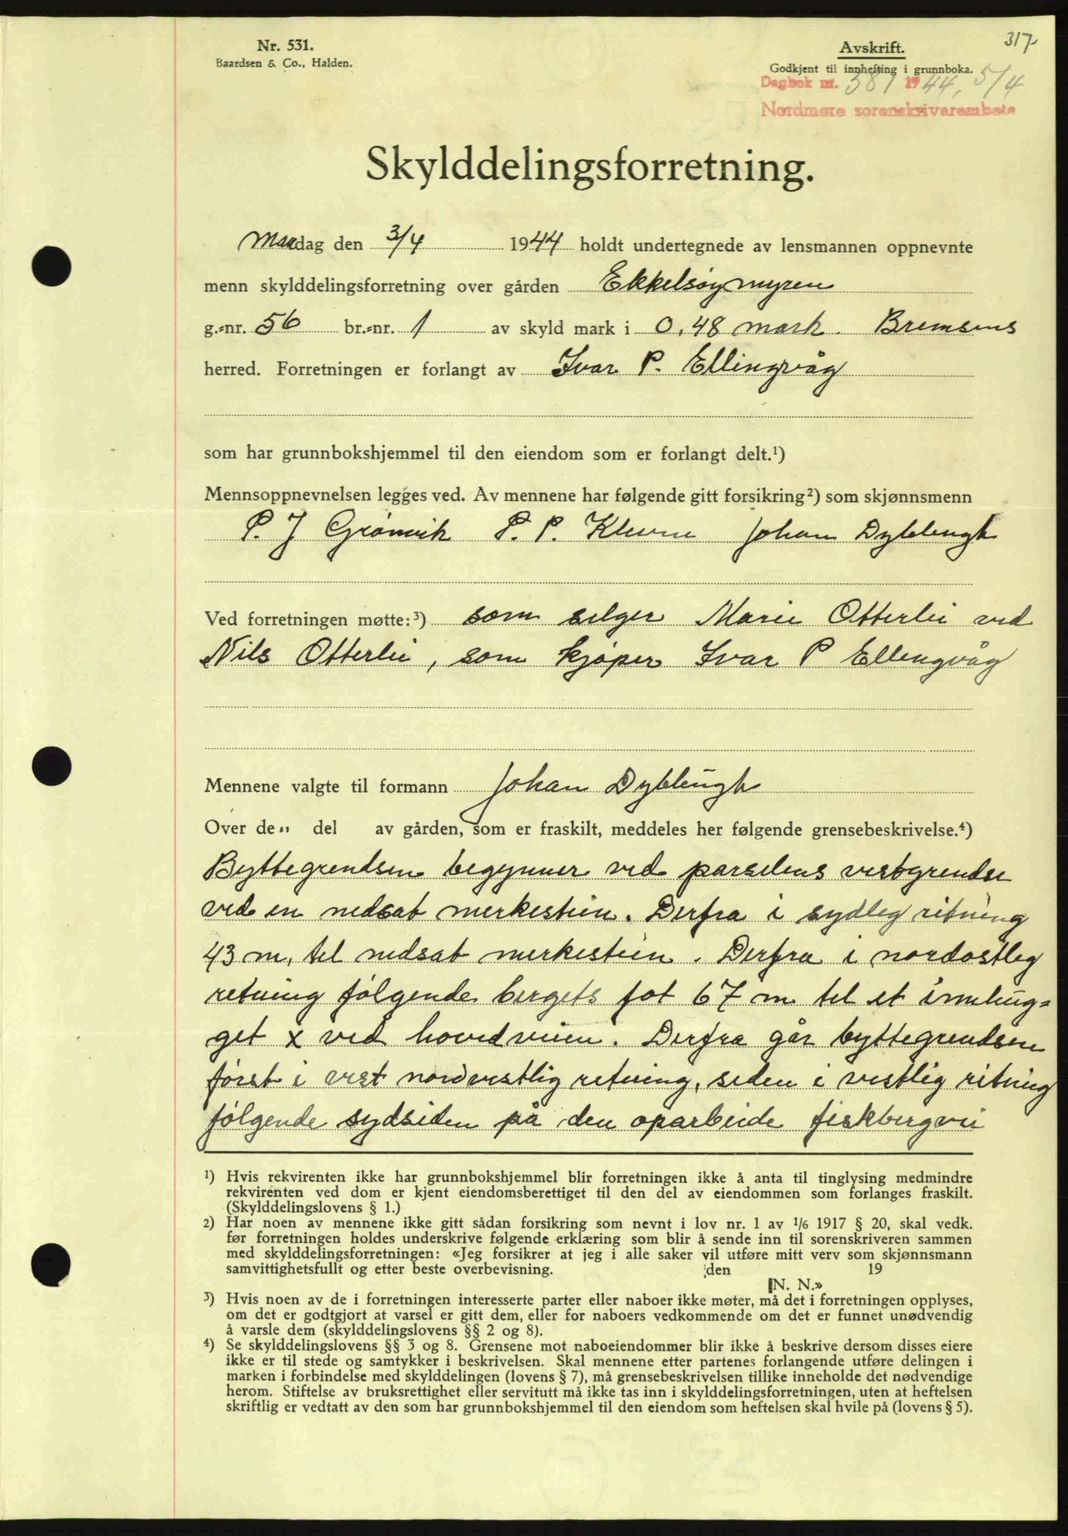 317
Nr. 531.
Baardsen & Co., Halden.
Avskrift.
Godkjent til innhefting i grunnboka.
Dagbok nr. 581 1944, 5/4
Nordmøre sorenskrivarembete
Skylddelingsforretning.
Mandag den 3/4 1944 holdt undertegnede av lensmannen oppnevnte
menn skylddelingsforretning over gården Ekkelsøymyren
g.-nr. 56 br.-nr. 1 av skyld mark i 0,48 mark. Bremsnes
herred. Forretningen er forlangt av Ivar P. Ellingvåg
som har grunnbokshjemmel til den eiendom som er forlangt delt.¹)
Mennsoppnevnelsen legges ved. Av mennene har følgende gitt forsikring²) som skjønnsmenn
P. J Grønvik P. P. Johan
Ved forretningen møtte:³) som selger Marie Otterlei ved
Nils Otterlei, som kjøper Ivar P Ellingvåg
Mennene valgte til formann Johan
Over de" del av gården, som er fraskilt, meddeles her følgende grensebeskrivelse.⁴)
Byttegrendsen begynner ved parselens vestgrendse
ved en nedsat merkestein. Derfra i sydleg retning
43 m. tel nedsat merkestein. Derfra i nordostleg
retning følgende bergets fot 67 m tel et innhug-
get x ved hovedveien. Derfra går byttegrendsen
først i vest nordvestlig retning, siden i vestlig retning
følgende sydsiden på den oparbeide fiskbergvei
¹) Hvis rekvirenten ikke har grunnbokshjemmel blir forretningen ikke å anta til tinglysing medmindre
rekvirenten ved dom er kjent eiendomsberettiget til den del av eiendommen som forlanges fraskilt.
(Skylddelingslovens § 1.)
²) Har noen av mennene ikke gitt sådan forsikring som nevnt i lov nr. 1 av 1/6 1917 § 20, skal vedk.
før forretningen holdes underskrive følgende erklæring som blir å sende inn til sorenskriveren sammen
med skylddelingsforretningen: «Jeg forsikrer at jeg i alle saker vil utføre mitt verv som skjønnsmann
samvittighetsfullt og etter beste overbevisning. den 19
N. N.»
³) Hvis noen av de i forretningen interesserte parter eller naboer ikke møter, må det i forretningen opplyses,
om det er godtgjort at varsel er gitt dem, eller for naboers vedkommende om det er funnet unødvendig
å varsle dem (skylddelingslovens §§ 2 og 8).
⁴) Se skylddelingslovens §§ 3 og 8. Grensene mot naboeiendommer blir ikke å beskrive dersom disses eiere
ikke er til stede og samtykker i beskrivelsen. Skal mennene etter partenes forlangende utføre delingen i
marken i forbindelse med skylddelingen (lovens § 7), må grensebeskrivelsen tillike inneholde det nødvendige
herom. Stiftelse av bruksrettighet eller servitutt må ikke tas inn i skylddelingsforretningen, uten at heftelsen
skriftlig er vedtatt av den som har grunnbokshjemmel til den eiendom som heftelsen skal hvile på (lovens § 5).